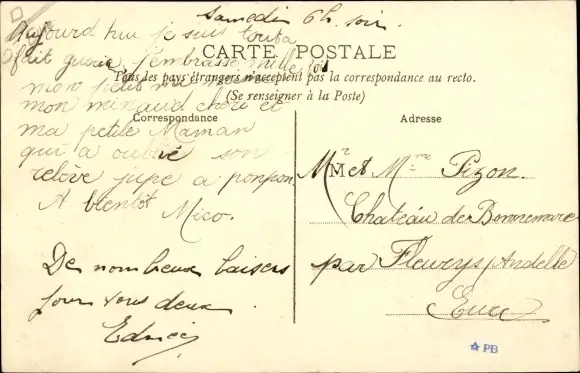 Samedi 6h. soir
Aujourd hui je suis tout a
fait guérie, j'embrasse mille fois
mon petit
mon minaud chéri et
ma petite Maman
qui a oublié son
relève jupe a ponpon
A bientôt
Mico.
De nombreux baisers
pour vous deux
CARTE POSTALE
Tous les pays étrangers n'acceptent pas la correspondance au recto.
(Se renseigner à la Poste)
Correspondance
Adresse
M
Mr et Mme Pizon.
Chateau de Bonnemare
par Fleury s/ Andelle
Eure
PB